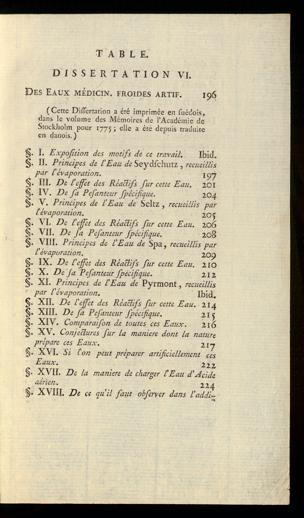 TABLE.
DISSERTATION VI.
DES EAUX MÉDICIN. FROIDES ARTIF. 196
(Cette Dissertation a été imprimée en suédois,
dans le volume des Mémoires de l'Académie de
Stockholm pour 1775; elle a été depuis traduite
en danois.)
§. I. Exposition des motifs de ce travail. Ibid.
§. II. Principes de l'Eau de Seydschutz, recueillis
par l'évaporation. 197
§. III. De l'effet des Réactifs sur cette Eau. 201
§. IV. De sa Pesanteur spécifique. 204
§. V. Principes de l'Eau de Seltz, recueillis par
l'évaporation. 205
§. VI. De l'effet des Réactifs sur cette Eau. 206
§. VII. De sa Pesanteur spécifique. 208
§. VIII. Principes de l'Eau de Spa, recueillis par
l'évaporation. 209
§. IX. De l'effet des Réactifs sur cette Eau. 210
§. X. De sa Pesanteur spécifique. 212
§. XI. Principes de l'Eau de Pyrmont, recueillis
par l'évaporation. Ibid.
§. XII. De l'effet des Réactifs sur cette Eau. 214
§. XIII. De sa Pesanteur spécifique. 215
§. XIV. Comparaison de toutes ces Eaux. 216
§. XV. Conjectures sur la maniere dont la nature
prépare ces Eaux. 217
§. XVI. Si l'on peut préparer artificiellement ces
Eaux. 222
§. XVII. De la maniere de charger l'Eau d'Acide
aérien. 224
§. XVIII. De ce qu'il faut observer dans l'addi-